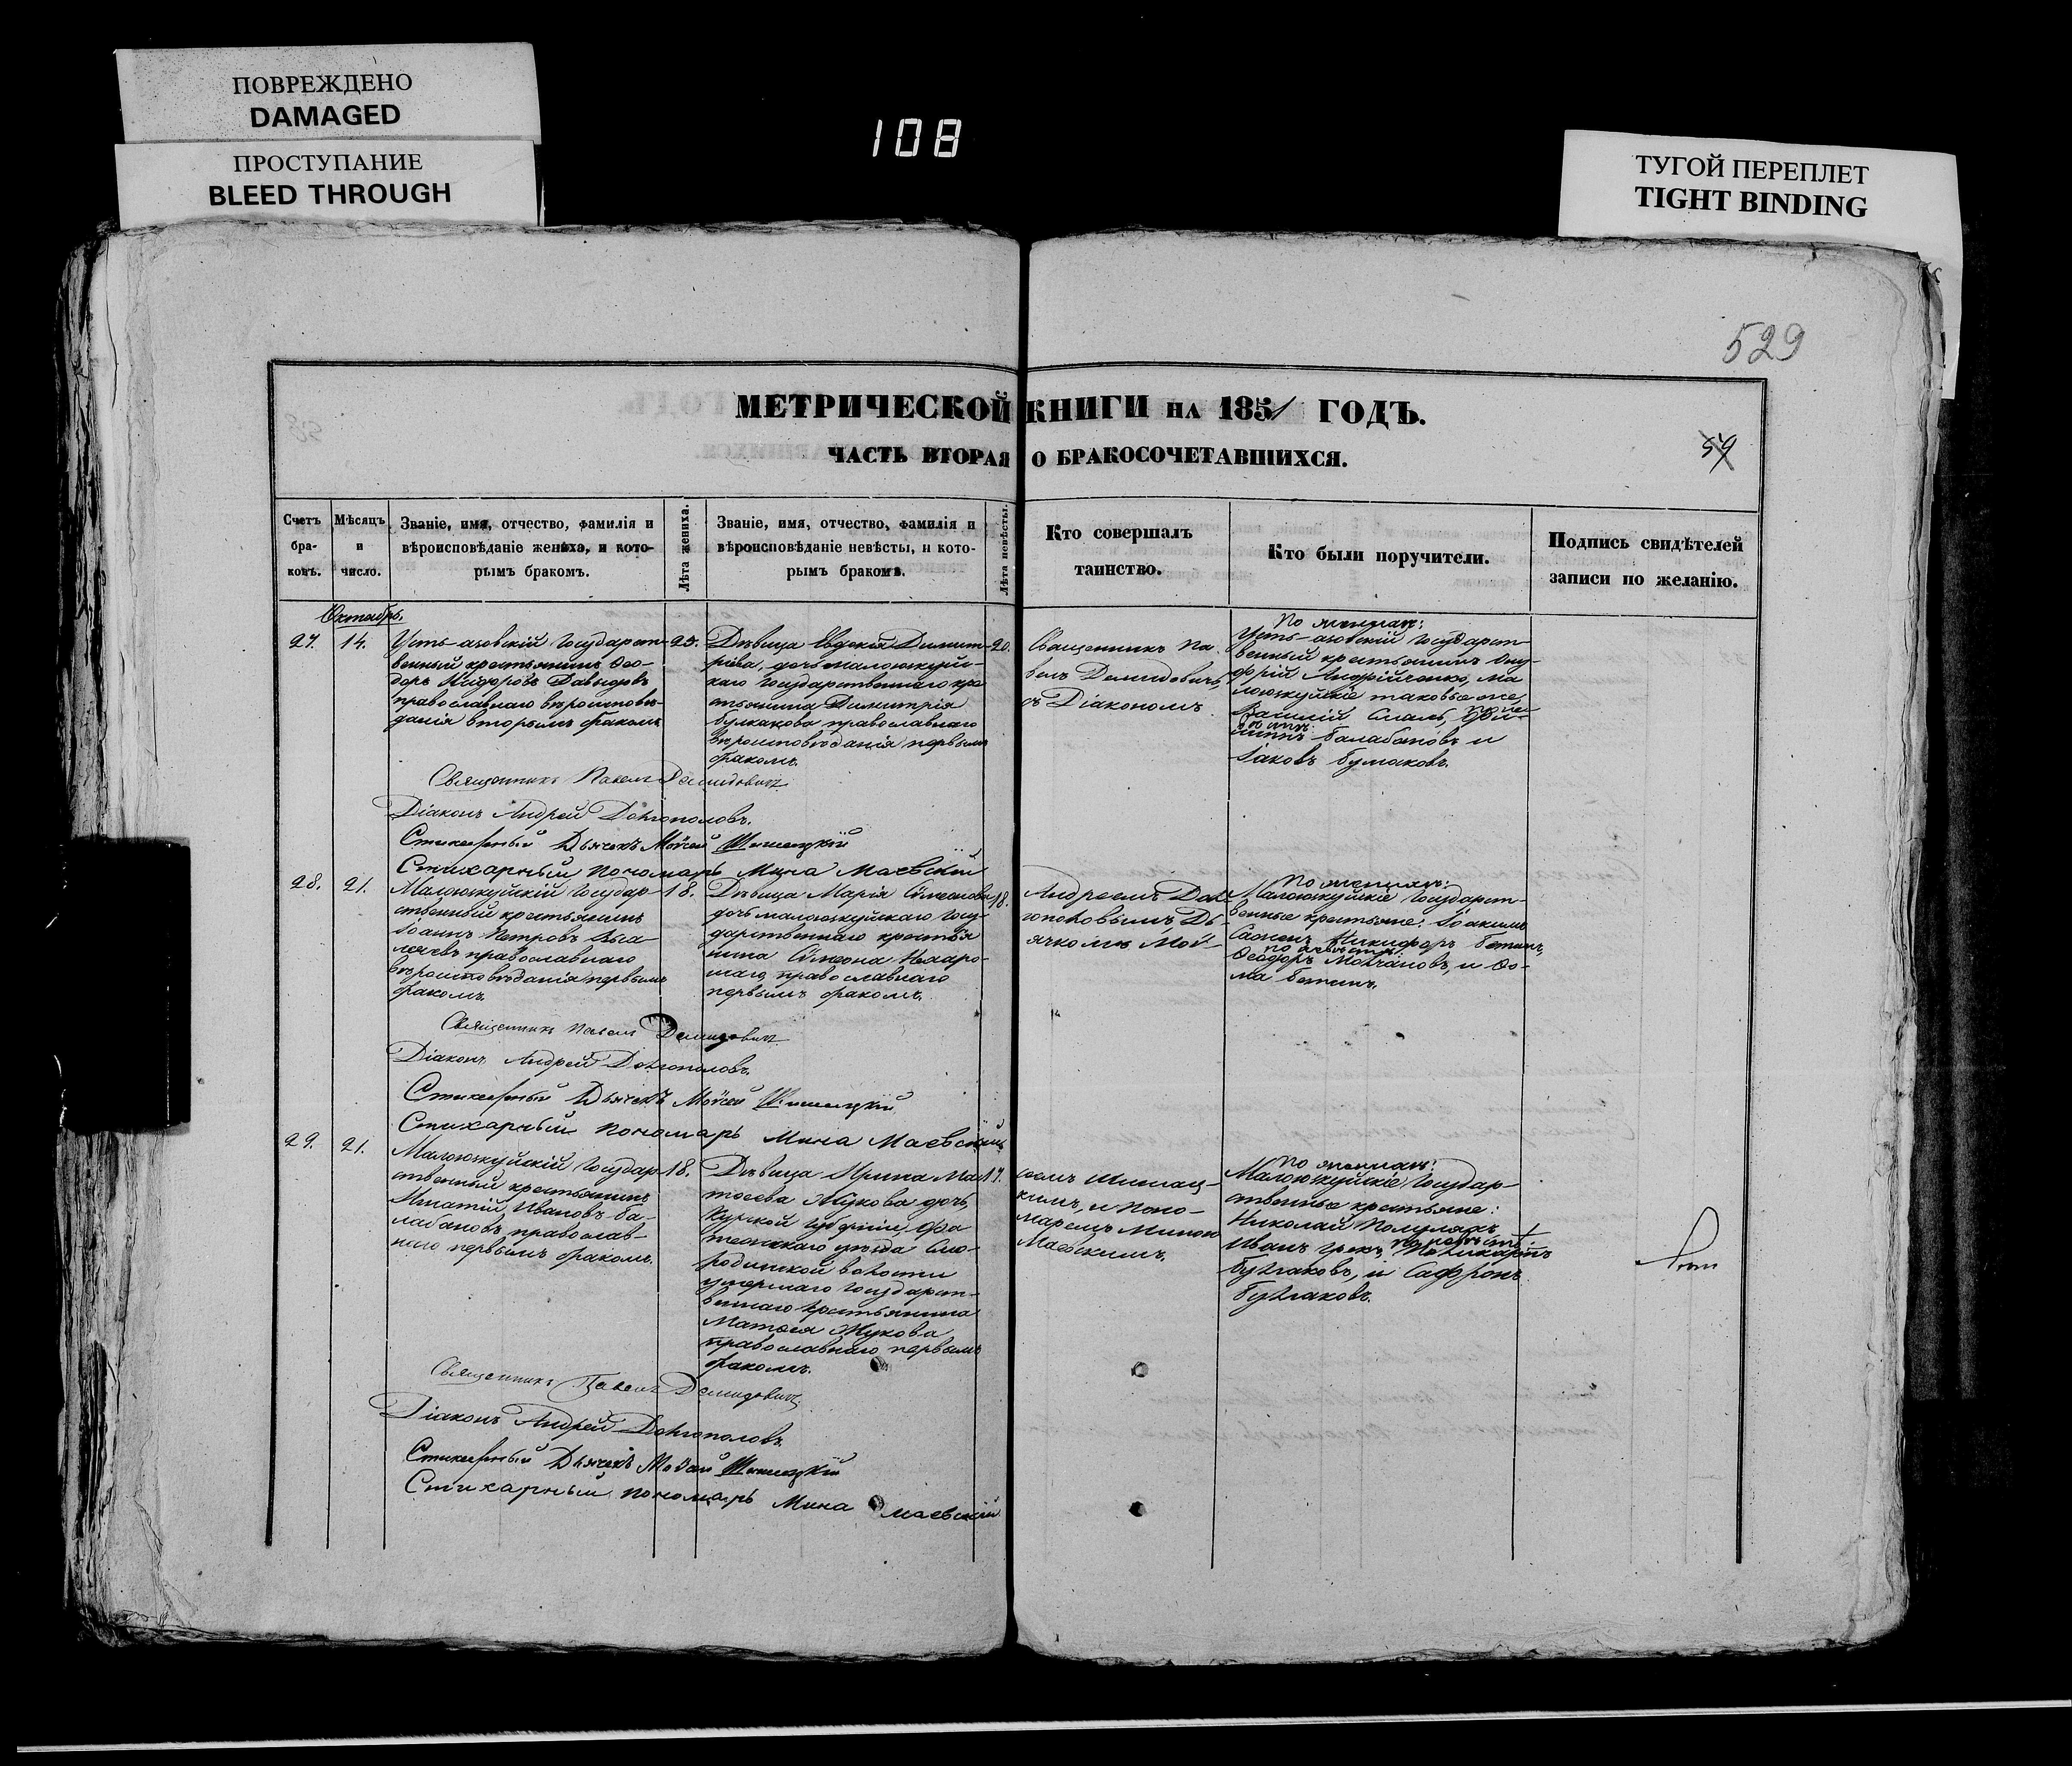 ПОВРЕЖДЕНО
DAMAGED
ПРОСТУПАНИЕ
BLEED THROUGH
108
ТУГОЙ ПЕРЕПЛЕТ
TIGHT BINDING
529
МЕТРИЧЕСКОЙ КНИГИ НА 1851 ГОДЪ.
ЧАСТЬ ВТОРАЯ О БРАКОСОЧЕТАВШИХСЯ.
59
Счетъ
бра-
ковъ.
Мѣсяцъ
и
число.
Званіе, имя, отчество, фамилія и
вѣроисповѣданіе жениха, и кото-
рымъ бракомъ.
Лѣта жениха.
Званіе, имя, отчество, фамилія и
вѣроисповѣданіе невѣсты, и кото-
рымъ бракомъ.
Лѣта невѣсты.
Кто совершалъ
таинство.
Кто были поручители.
Подпись свидѣтелей
записи по желанію.
Октябрь.
27.
14.
Усть-азовскій Государст-
венный крестьянинъ Ѳео-
доръ Давыдовъ
православнаго вѣроисповѣ-
данія вторымъ бракомъ
25.
Дѣвица Евдокія Димит-
ріева, дочь малоюжкуй-
каго Государственнаго кре
стьянина Димитрія
православнаго
вѣроисповѣданія первымъ
бракомъ.
20.
Священникъ Па-
велъ Демидовичъ,
съ Діакономъ
По женихѣ:
Усть-азовскій Государст-
венный крестьянинъ Ону-
фрій Андрійченко, Ма
таковые же,
Василій
Балабановъ и
Іаковъ
Священникъ Павелъ Демидовичъ
Діаконъ Андрей Долгополовъ.
Стихарный Дьячекъ Мойсей
Стихарный пономарь Мина Маевскій
28.
21.
Малоюжкуйскій Государ-
ственный крестьянинъ
Іоаннъ Петровъ
православнаго
вѣроисповѣданія первымъ
бракомъ.
18.
Дѣвица Марія Сѵмеонова
дочь малоюжкуйскаго Госу-
дарственнаго крестья
нина Сѵмеона
православнаго
первымъ бракомъ.
18.
Андреемъ Дол-
гополовымъ, Дь-
ячкомъ Мой-
По женихѣ:
Малоюжкуйскіе Государст-
венные крестьяне: Іоакимъ
Никифоръ
по невѣстѣ:
Ѳеодоръ Молчановъ, и Ѳо-
ма
Священникъ Павелъ Демидовичъ
Діаконъ Андрей Долгополовъ.
Стихарный Дьячекъ Мойсей
Стихарный пономарь Мина Маевскій
29.
21.
Малоюжкуйскій Государ-
ственный крестьянинъ
Игнатій Ивановъ Ба-
лабановъ православ-
наго первымъ бракомъ.
18.
Дѣвица Ирина Мат
ѳеева Жукова дочь
Курской Губерніи, Фа
тежскаго уѣзда Смо-
родинской волости
умершаго Государст-
веннаго крестьянина
Матѳея Жукова
православнаго первымъ
бракомъ.
17.
кимъ, и Поно-
маремъ Миною
Маевскимъ.
По женихѣ:
Малоюжкуйскіе Государ-
ственные крестьяне:
Николай
Иванъ Грекъ, по невѣстѣ: Поликарпъ
Булгаковъ, и Сафронъ
Булгаковъ.
Священникъ Павелъ Демидовичъ
Діаконъ Андрей Долгополовъ
Стихарный Дьячекъ Мойсей
Стихарный пономарь Мина Маевскій